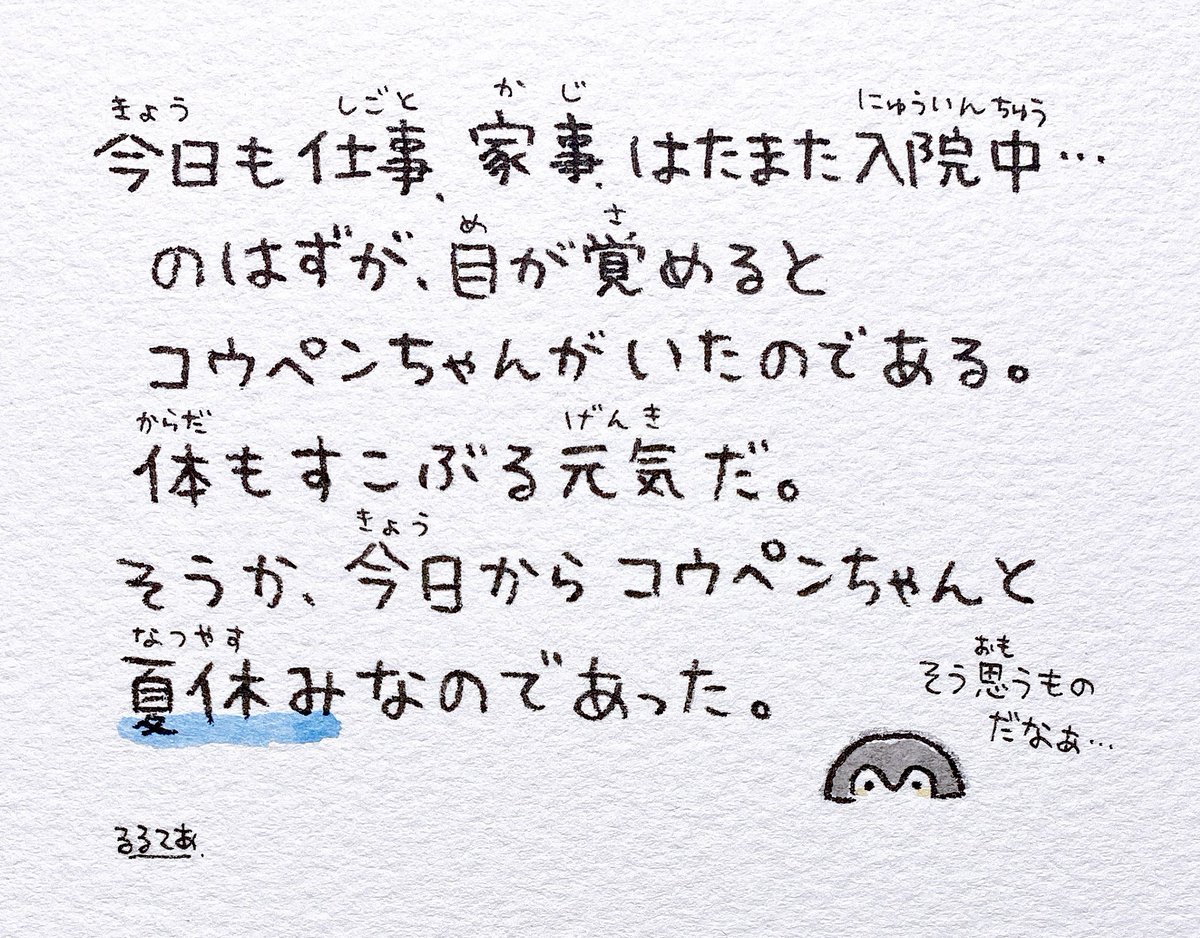 きょう しごと かじ にゅういんちゅう
今日も仕事、家事、はたまた入院中…
め さ
のはずが、目が覚めると
コウペンちゃんがいたのである。
からだ げんき
体もすこぶる元気だ。
きょう
そうか、今日からコウペンちゃんと
なつやす
夏休みなのであった。
おも
そう思うもの
だなぁ…
るるてあ.